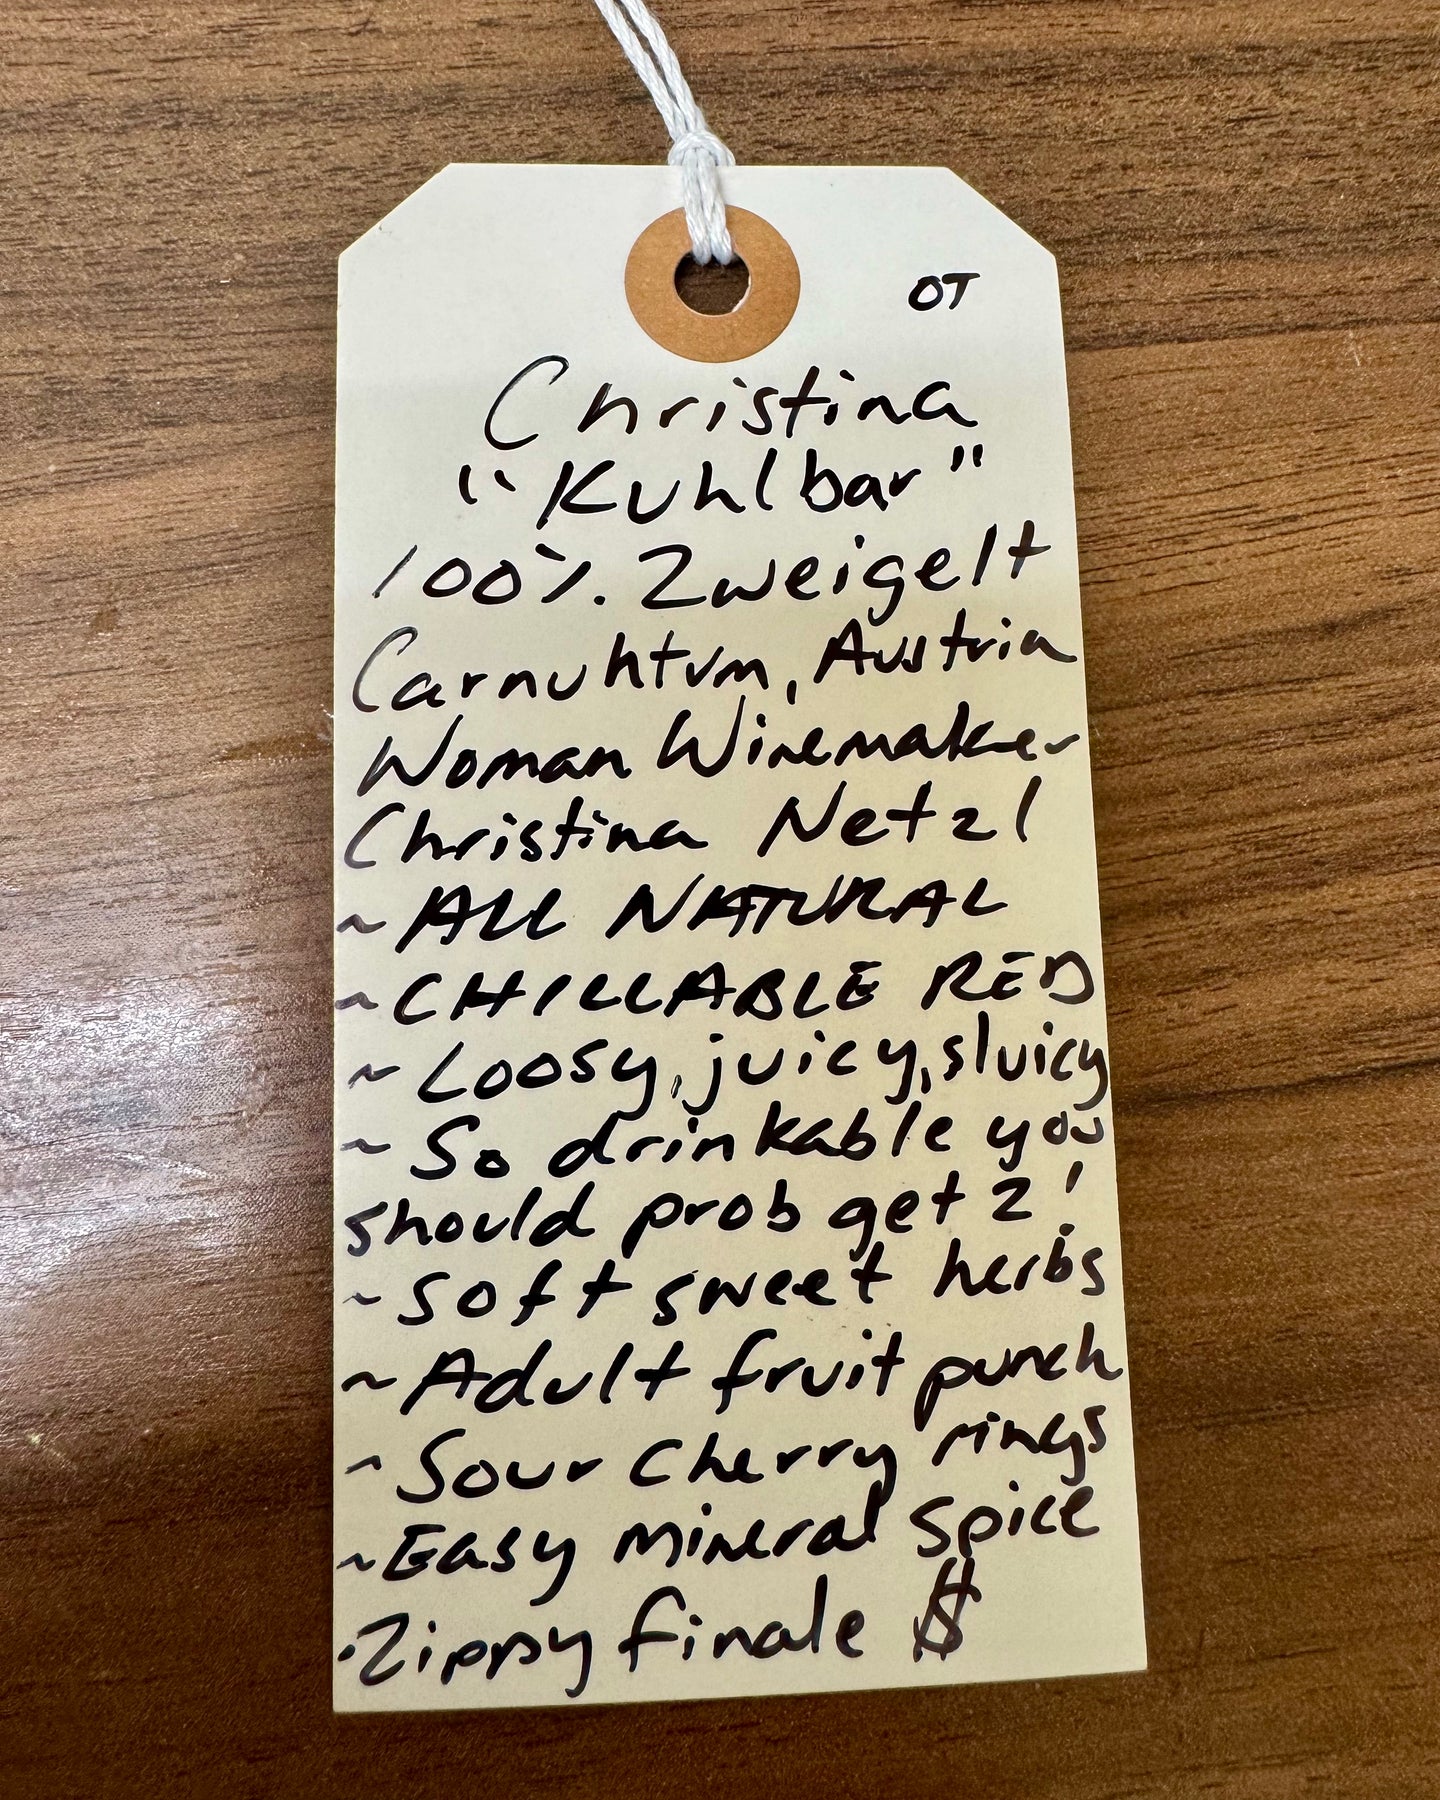 OT
Christina
"Kuhlbar"
100% Zweigelt
Carnuhtum, Austria
Woman Winemaker
Christina Netzl
~ ALL NATURAL
~ CHILLABLE RED
~ Loosy, juicy, sluicy
~ So drinkable you
should prob get 2!
~ soft sweet herbs
~ Adult fruit punch
~ Sour cherry rings
~ Easy mineral spice
· Zippy finale $